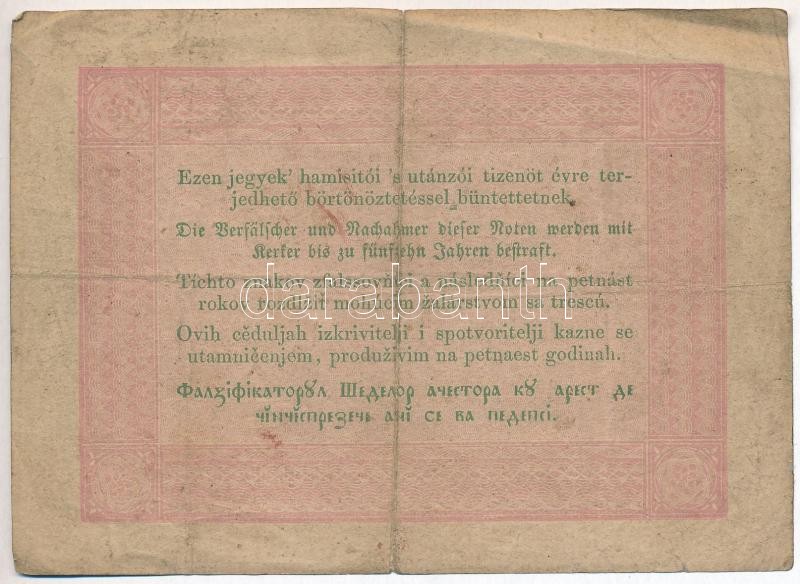 Ezen jegyek' hamisitói 's utánzói tizenöt évre ter-
jedhető börtönöztetéssel büntettetnek.
Die Verfälscher und Nachahmer dieser Noten werden mit
Kerker bis zu fünfzehn Jahren bestraft.
Tíchto znakov a následňíci na petnást
rokov rozďížiť mohúcim žalárstvom sa trescú.
Ovih cěduljah izkrivitelji i spotvoritelji kazne se
utamničenjem, produživim na petnaest godinah.
Фалꙁіфікаторꙋл Шеделор ачестора кꙋ арест де
чінчіспреꙁече ані се ва педепсі.
darabanth